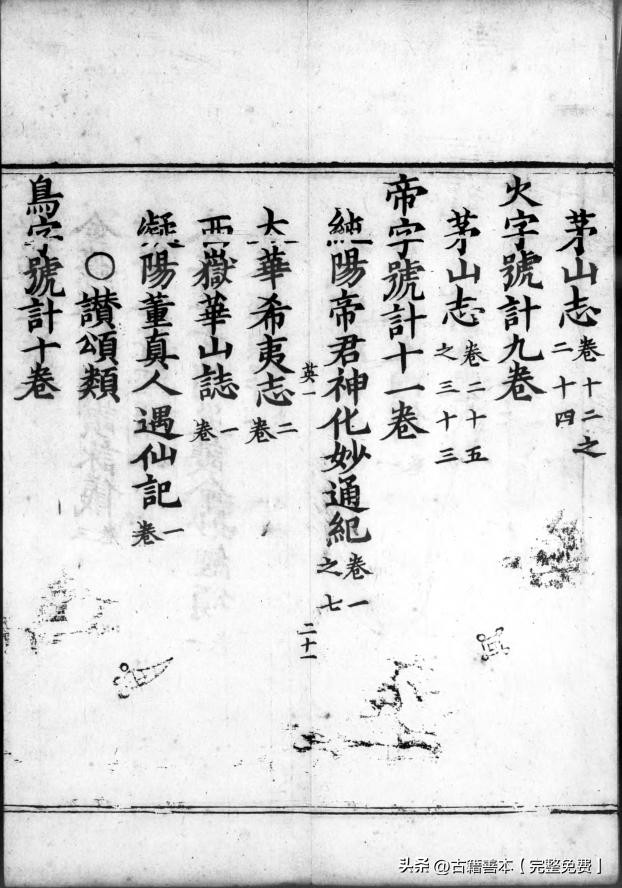 茅山志卷十二之二十四
火字號計九卷
茅山志卷二十五之三十三
帝字號計十一卷
純陽帝君神化妙通紀卷一之七
英一
二十一
太華希夷志二卷
西嶽華山誌一卷
凝陽董真人遇仙記一卷
○讃頌類
鳥字號計十卷
头条 @古籍善本【完整免费】